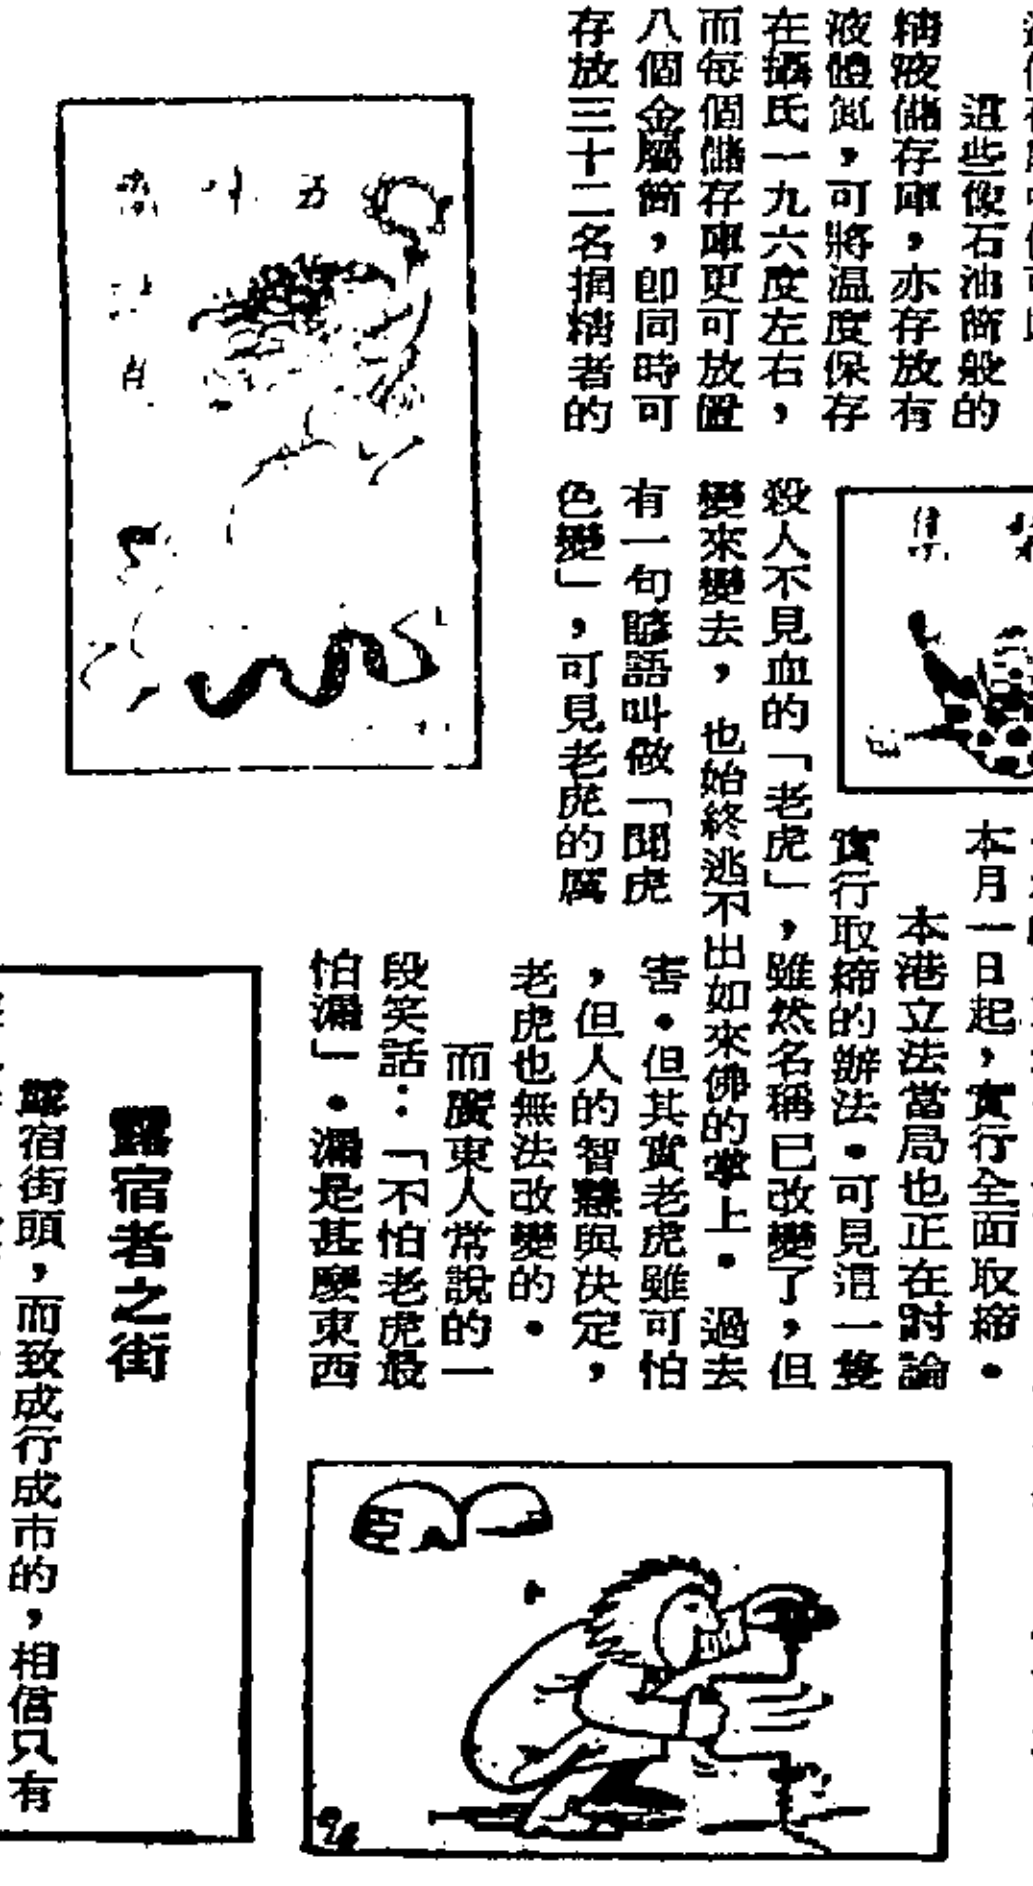 這些像石油筒般的
精液儲存庫，亦存放有
液體氮，可將温度保存
在攝氏一九六度左右，
而每個儲存庫更可放置
八個金屬筒，卽同時可
存放三十二名捐精者的
本月一日起，實行全面取締。
本港立法當局也正在討論
實行取締的辦法。可見這一隻
殺人不見血的「老虎」，雖然名稱已改變了，但
變來變去，也始終逃不出如來佛的掌上。過去
有一句諺語叫做「聞虎
色變」，可見老虎的厲
害。但其實老虎雖可怕
，但人的智慧與決定，
老虎也無法改變的。
而廣東人常說的一
段笑話：「不怕老虎最
怕漏」。漏是甚麼東西
露宿者之街
露宿街頭，而致成行成市的，相信只有